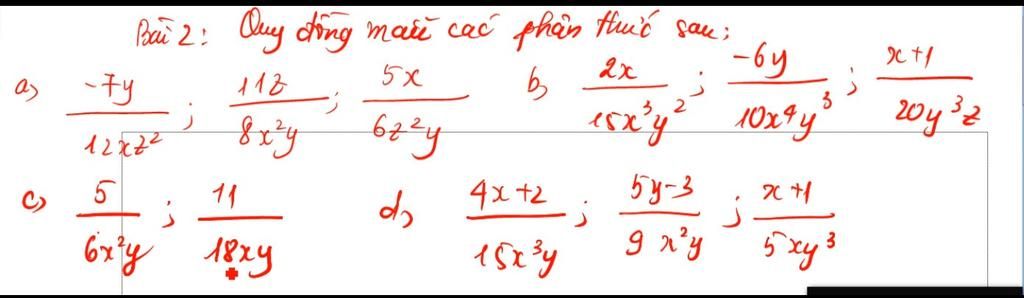 Bài 2: Quy đồng mẫu các phân thức sau:
a) -7y/12xz² ; 11z/8x²y ; 5x/6z²y b) 2x/15x³y² ; -6y/10x⁴y³ ; x+1/20y³z
c) 5/6x²y ; 11/18xy d) 4x+2/15x³y ; 5y-3/9x²y ; x+1/5xy³